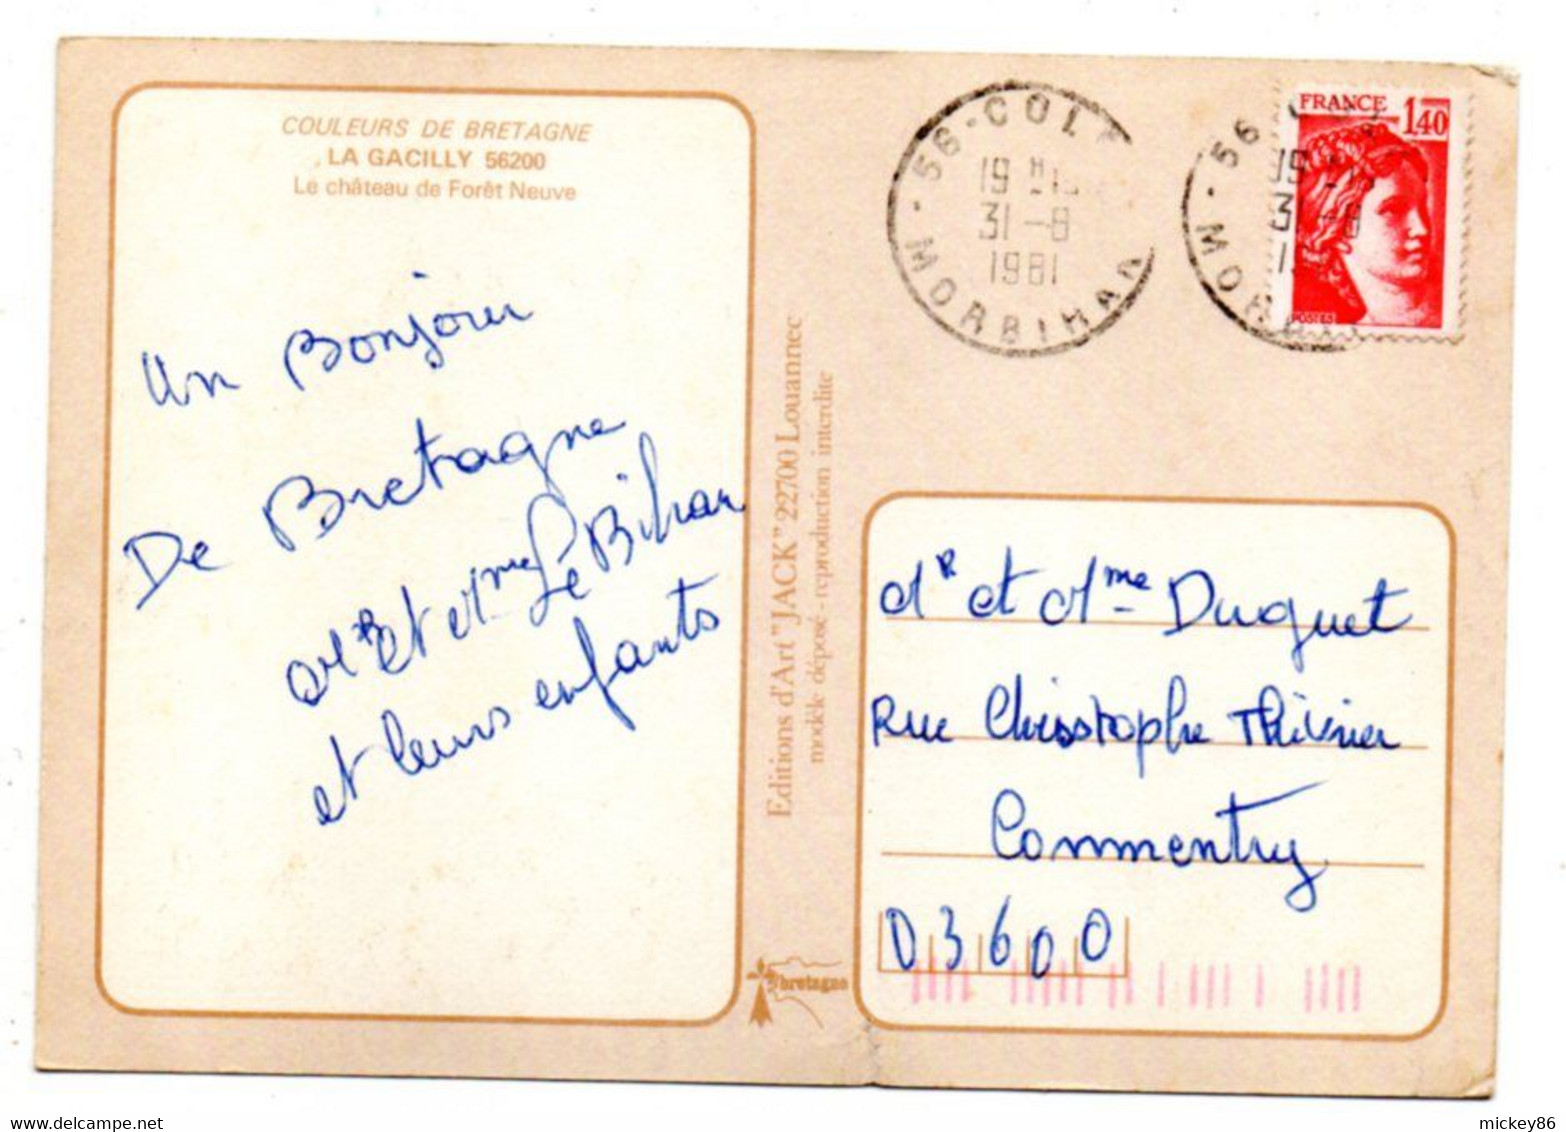 COULEURS DE BRETAGNE
LA GACILLY 56200
Le château de Forêt Neuve
Un Bonjour
De Bretagne
Mr et Mme Le Bihan
et leurs enfants
Editions d'Art "JACK" 22700 Louannec
modèle déposé - reproduction interdite
bretagne
56-COL
19 H
31-8
1981
MORBIHAN
56
19
31-8
MORBI
FRANCE
1,40
POSTES
Mr et Mme Duguet
Rue Christophe Thivrier
Commentry
03600
mickey86